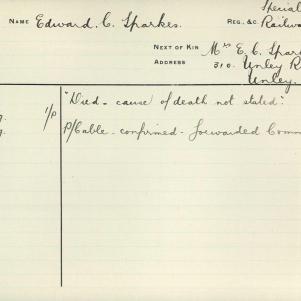 Special
NAME Edward. C. Sparkes. REG. &C Railwa
NEXT OF KIN Mrs E. C. Spar
ADDRESS 310. Unley R
Unley.
"Died - cause of death not stated".
g. 1/P P/Cable - confirmed - forwarded Comm
g.